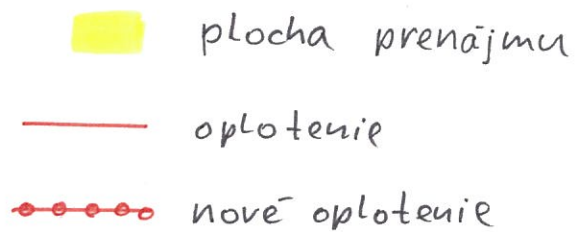 plocha prenájmu
oplotenie
nové oplotenie